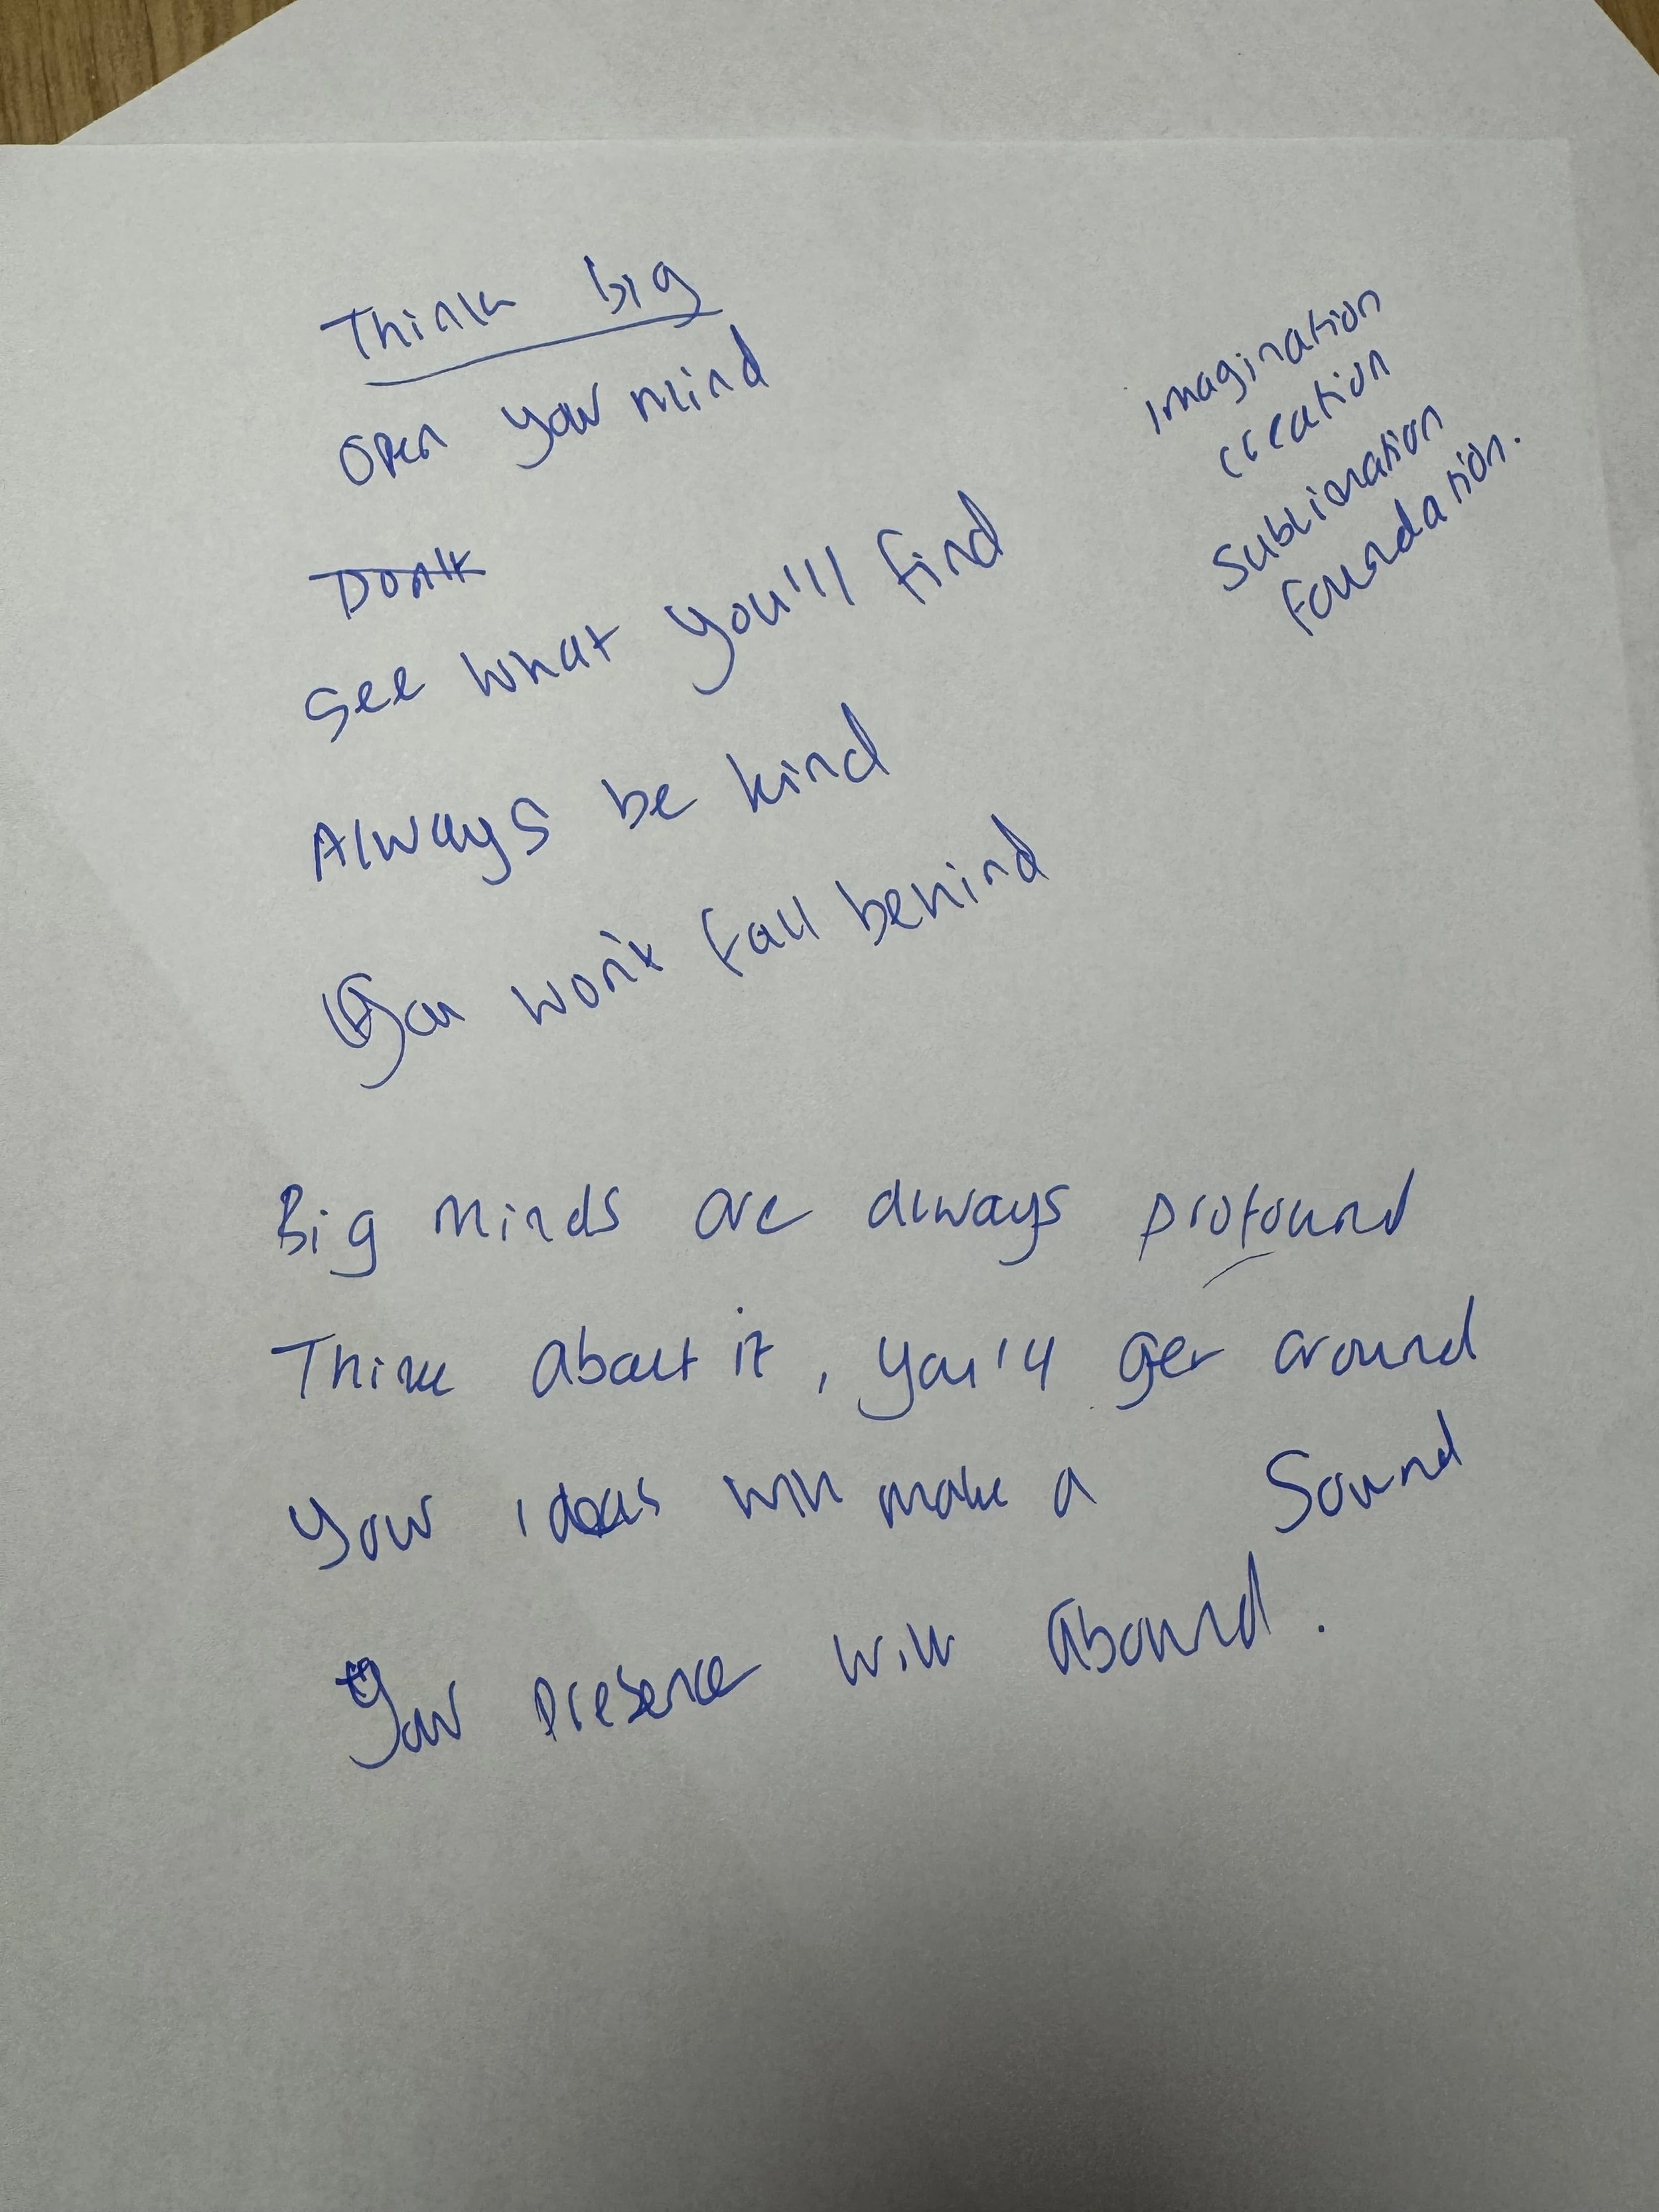 Think big
Open your mind
Don't
See what you'll find
Always be kind
You won't fall behind
Big minds are always profound
Think about it, you'll get around
Your ideas will make a sound
Your presence will abound.
imagination
creation
sublimation
foundation.